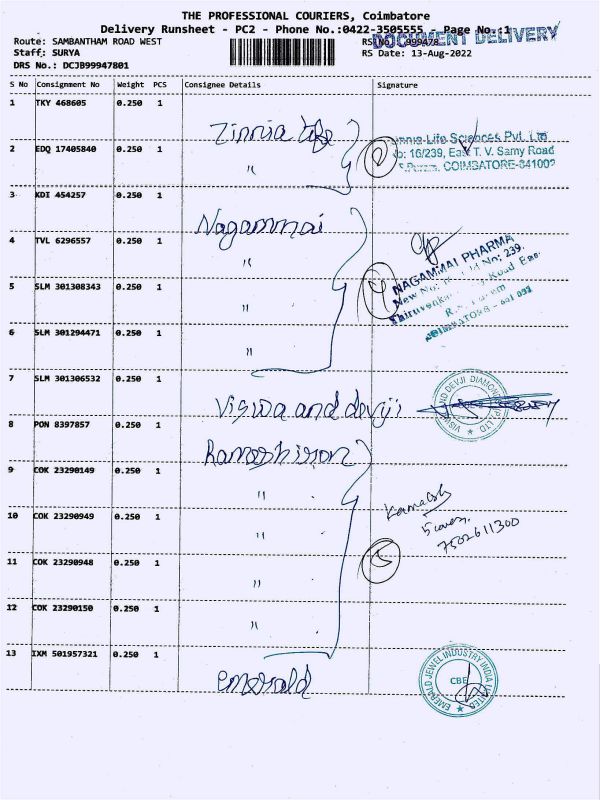 THE PROFESSIONAL COURIERS, Coimbatore
Delivery Runsheet - PC2 - Phone No.:0422-3505555 - Page No.:1
DOCUMENT DELIVERY
Route: SAMBANTHAM ROAD WEST
RS NO.: 999478
Staff: SURYA
RS Date: 13-Aug-2022
DRS No.: DCJB99947801
S No Consignment No Weight PCS Consignee Details Signature
1 TKY 468605 0.250 1
Zinnia life
2 EDQ 17405840 0.250 1
"
2
Zinnia-Life Sciences Pvt. Ltd
No: 16/239, East T. V. Samy Road
COIMBATORE-641002
3 KDI 454257 0.250 1
Nagammai
4 TVL 6296557 0.250 1
"
5 SLM 301308343 0.250 1
"
4
NAGAMMAI PHARMA
New No: Old No: 239,
Road East
R.S. Puram
COIMBATORE - 641 002
6 SLM 301294471 0.250 1
"
7 SLM 301306532 0.250 1
Viswa and devji
VISWA AND DEVJI DIAMONDS (P) LTD
8 PON 8397857 0.250 1
9 COK 23290149 0.250 1
"
10 COK 23290949 0.250 1
"
Kamalsh
7502611300
11 COK 23290948 0.250 1
"
5
12 COK 23290150 0.250 1
"
13 IXM 501957321 0.250 1
emerald
EMERALD JEWEL INDUSTRY INDIA LIMITED
CBE